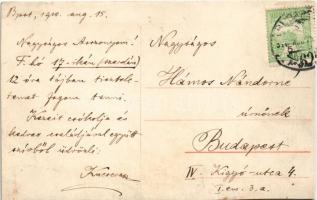 Bpest, 1910. aug. 15.
Nagyságos Asszonyom!
F. hó 17-kén (szerdán)
12 óra tájban tisztele-
temet fogom tenni.
Kezeit csókolja és
kedves családjával együtt
szívből üdvözli
Nagyságos
Hámos Nándorné
úrnőnek
Budapest
IV. Kigyó-utca 4.
I. em. 3. a.